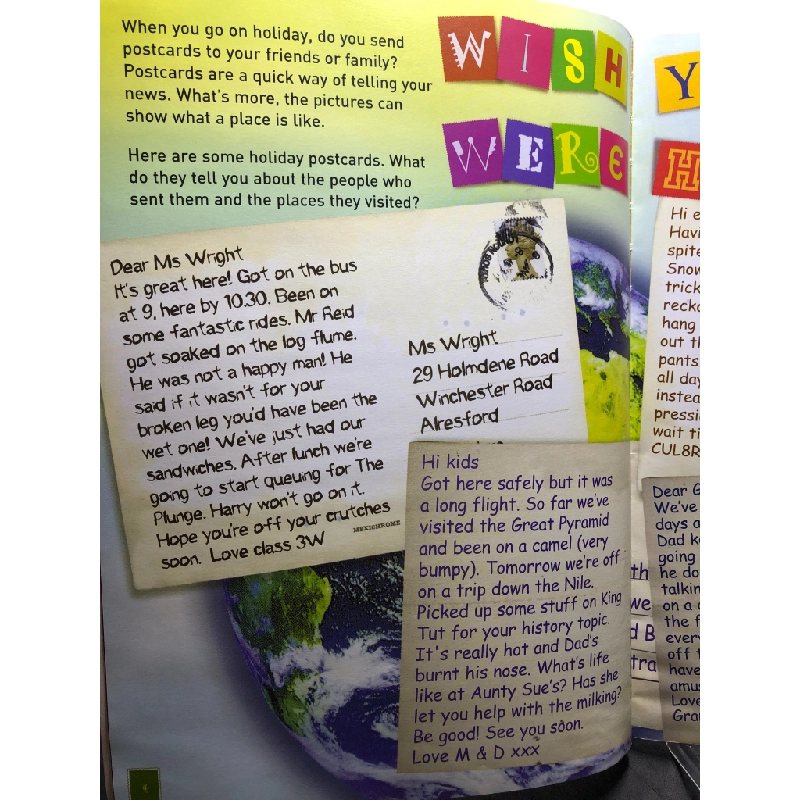 When you go on holiday, do you send
postcards to your friends or family?
Postcards are a quick way of telling your
news. What's more, the pictures can
show what a place is like.
Here are some holiday postcards. What
do they tell you about the people who
sent them and the places they visited?
WISH Y
WERE H
Dear Ms Wright
It's great here! Got on the bus
at 9, here by 10.30. Been on
some fantastic rides. Mr Reid
got soaked on the log flume.
He was not a happy man! He
said if it wasn't for your
broken leg you'd have been the
wet one! We've just had our
sandwiches. After lunch we're
going to start queuing for The
Plunge. Harry won't go on it.
Hope you're off your crutches
soon. Love class 3W
Ms Wright
29 Holmdene Road
Winchester Road
Alresford
Hi kids
Got here safely but it was
a long flight. So far we've
visited the Great Pyramid
and been on a camel (very
bumpy). Tomorrow we're off
on a trip down the Nile.
Picked up some stuff on King
Tut for your history topic.
It's really hot and Dad's
burnt his nose. What's life
like at Aunty Sue's? Has she
let you help with the milking?
Be good! See you soon.
Love M & D xxx
Hi e
Havi
spite
Snow
trick
recko
hang
out th
pants
all day
instea
pressi
wait ti
CUL8R
Dear G
We've
days a
Dad k
going
he do
talkin
on a
the f
every
off t
have
amus
Love
Gran
th
we
d B
tra
4